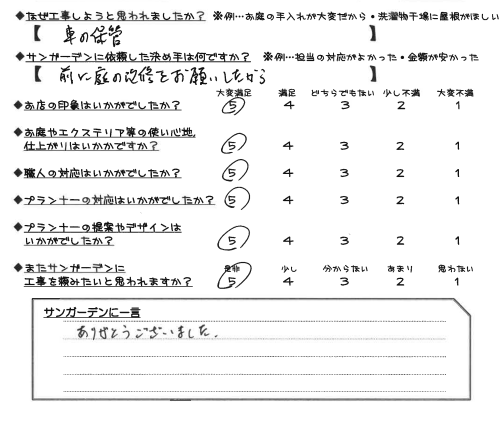 ◆なぜ工事しようと思われましたか？ ※例…お庭の手入れが大変だから・洗濯物干場に屋根がほしい
【 車の保管 】
◆サンガーデンに依頼した決め手は何ですか？ ※例…担当の対応がよかった・金額が安かった
【 前に庭の改修をお願いしたから 】
大変満足 満足 どちらでもない 少し不満 大変不満
◆お店の印象はいかがでしたか？ 5 4 3 2 1
◆お庭やエクステリア等の使い心地、
仕上がりはいかかですか？ 5 4 3 2 1
◆職人の対応はいかがでしたか？ 5 4 3 2 1
◆プランナーの対応はいかがでしたか？ 5 4 3 2 1
◆プランナーの提案やデザインは
いかがでしたか？ 5 4 3 2 1
◆またサンガーデンに 是非 少し 分からない あまり 思わない
工事を頼みたいと思われますか？ 5 4 3 2 1
サンガーデンに一言
ありがとうございました。